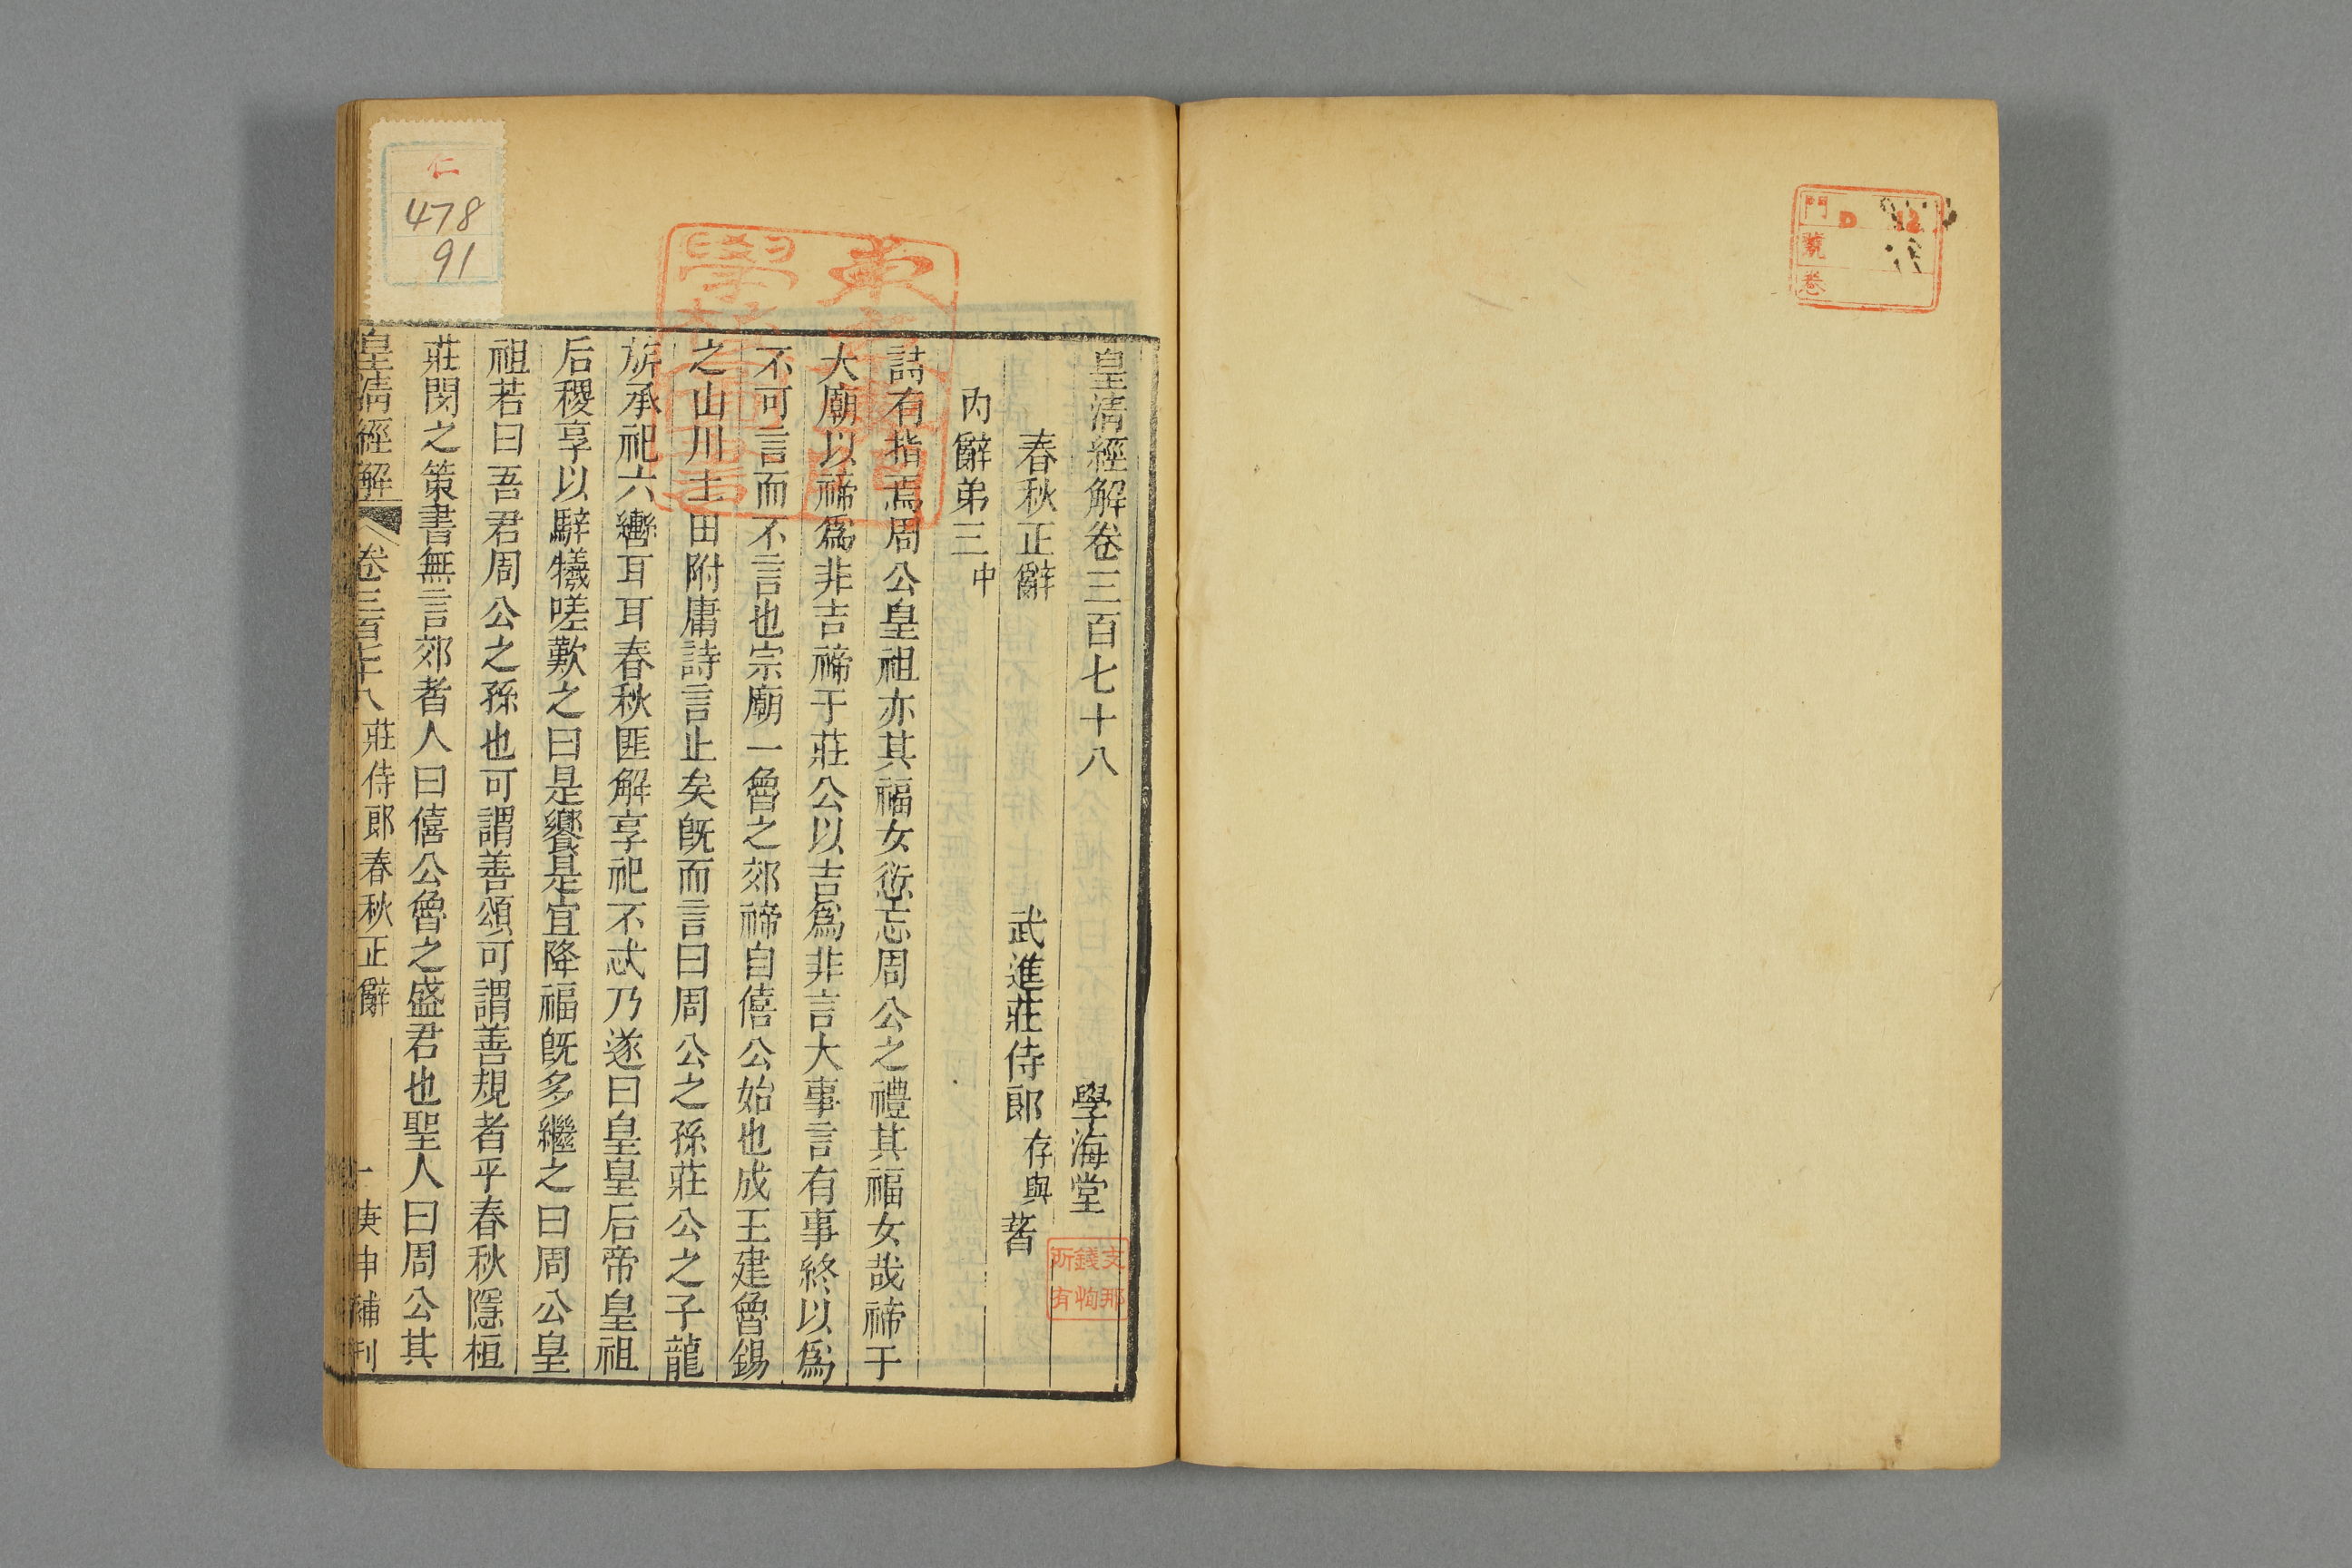 門
號
卷
D
12
皇清經解卷三百七十八
學海堂
春秋正辭
武進莊侍郎存與著
內辭弟三中
詩有指焉周公皇祖亦其福女愆忘周公之禮其福女哉禘于
大廟以禘爲非吉禘于莊公以吉爲非言大事言有事終以爲
不可言而不言也宗廟一魯之郊禘自僖公始也成王建魯錫
之山川土田附庸詩言止矣旣而言曰周公之孫莊公之子龍
旂承祀六轡耳耳春秋匪解享祀不忒乃遂曰皇皇后帝皇祖
后稷享以騂犧嗟歎之曰是饗是宜降福旣多繼之曰周公皇
祖若曰吾君周公之孫也可謂善頌可謂善規者乎春秋隱桓
莊閔之策書無言郊者人曰僖公魯之盛君也聖人曰周公其
皇淸經解
卷三百七十八
莊侍郎春秋正辭
一
庚申補刊
仁
478
91
支那
錢恂
所有